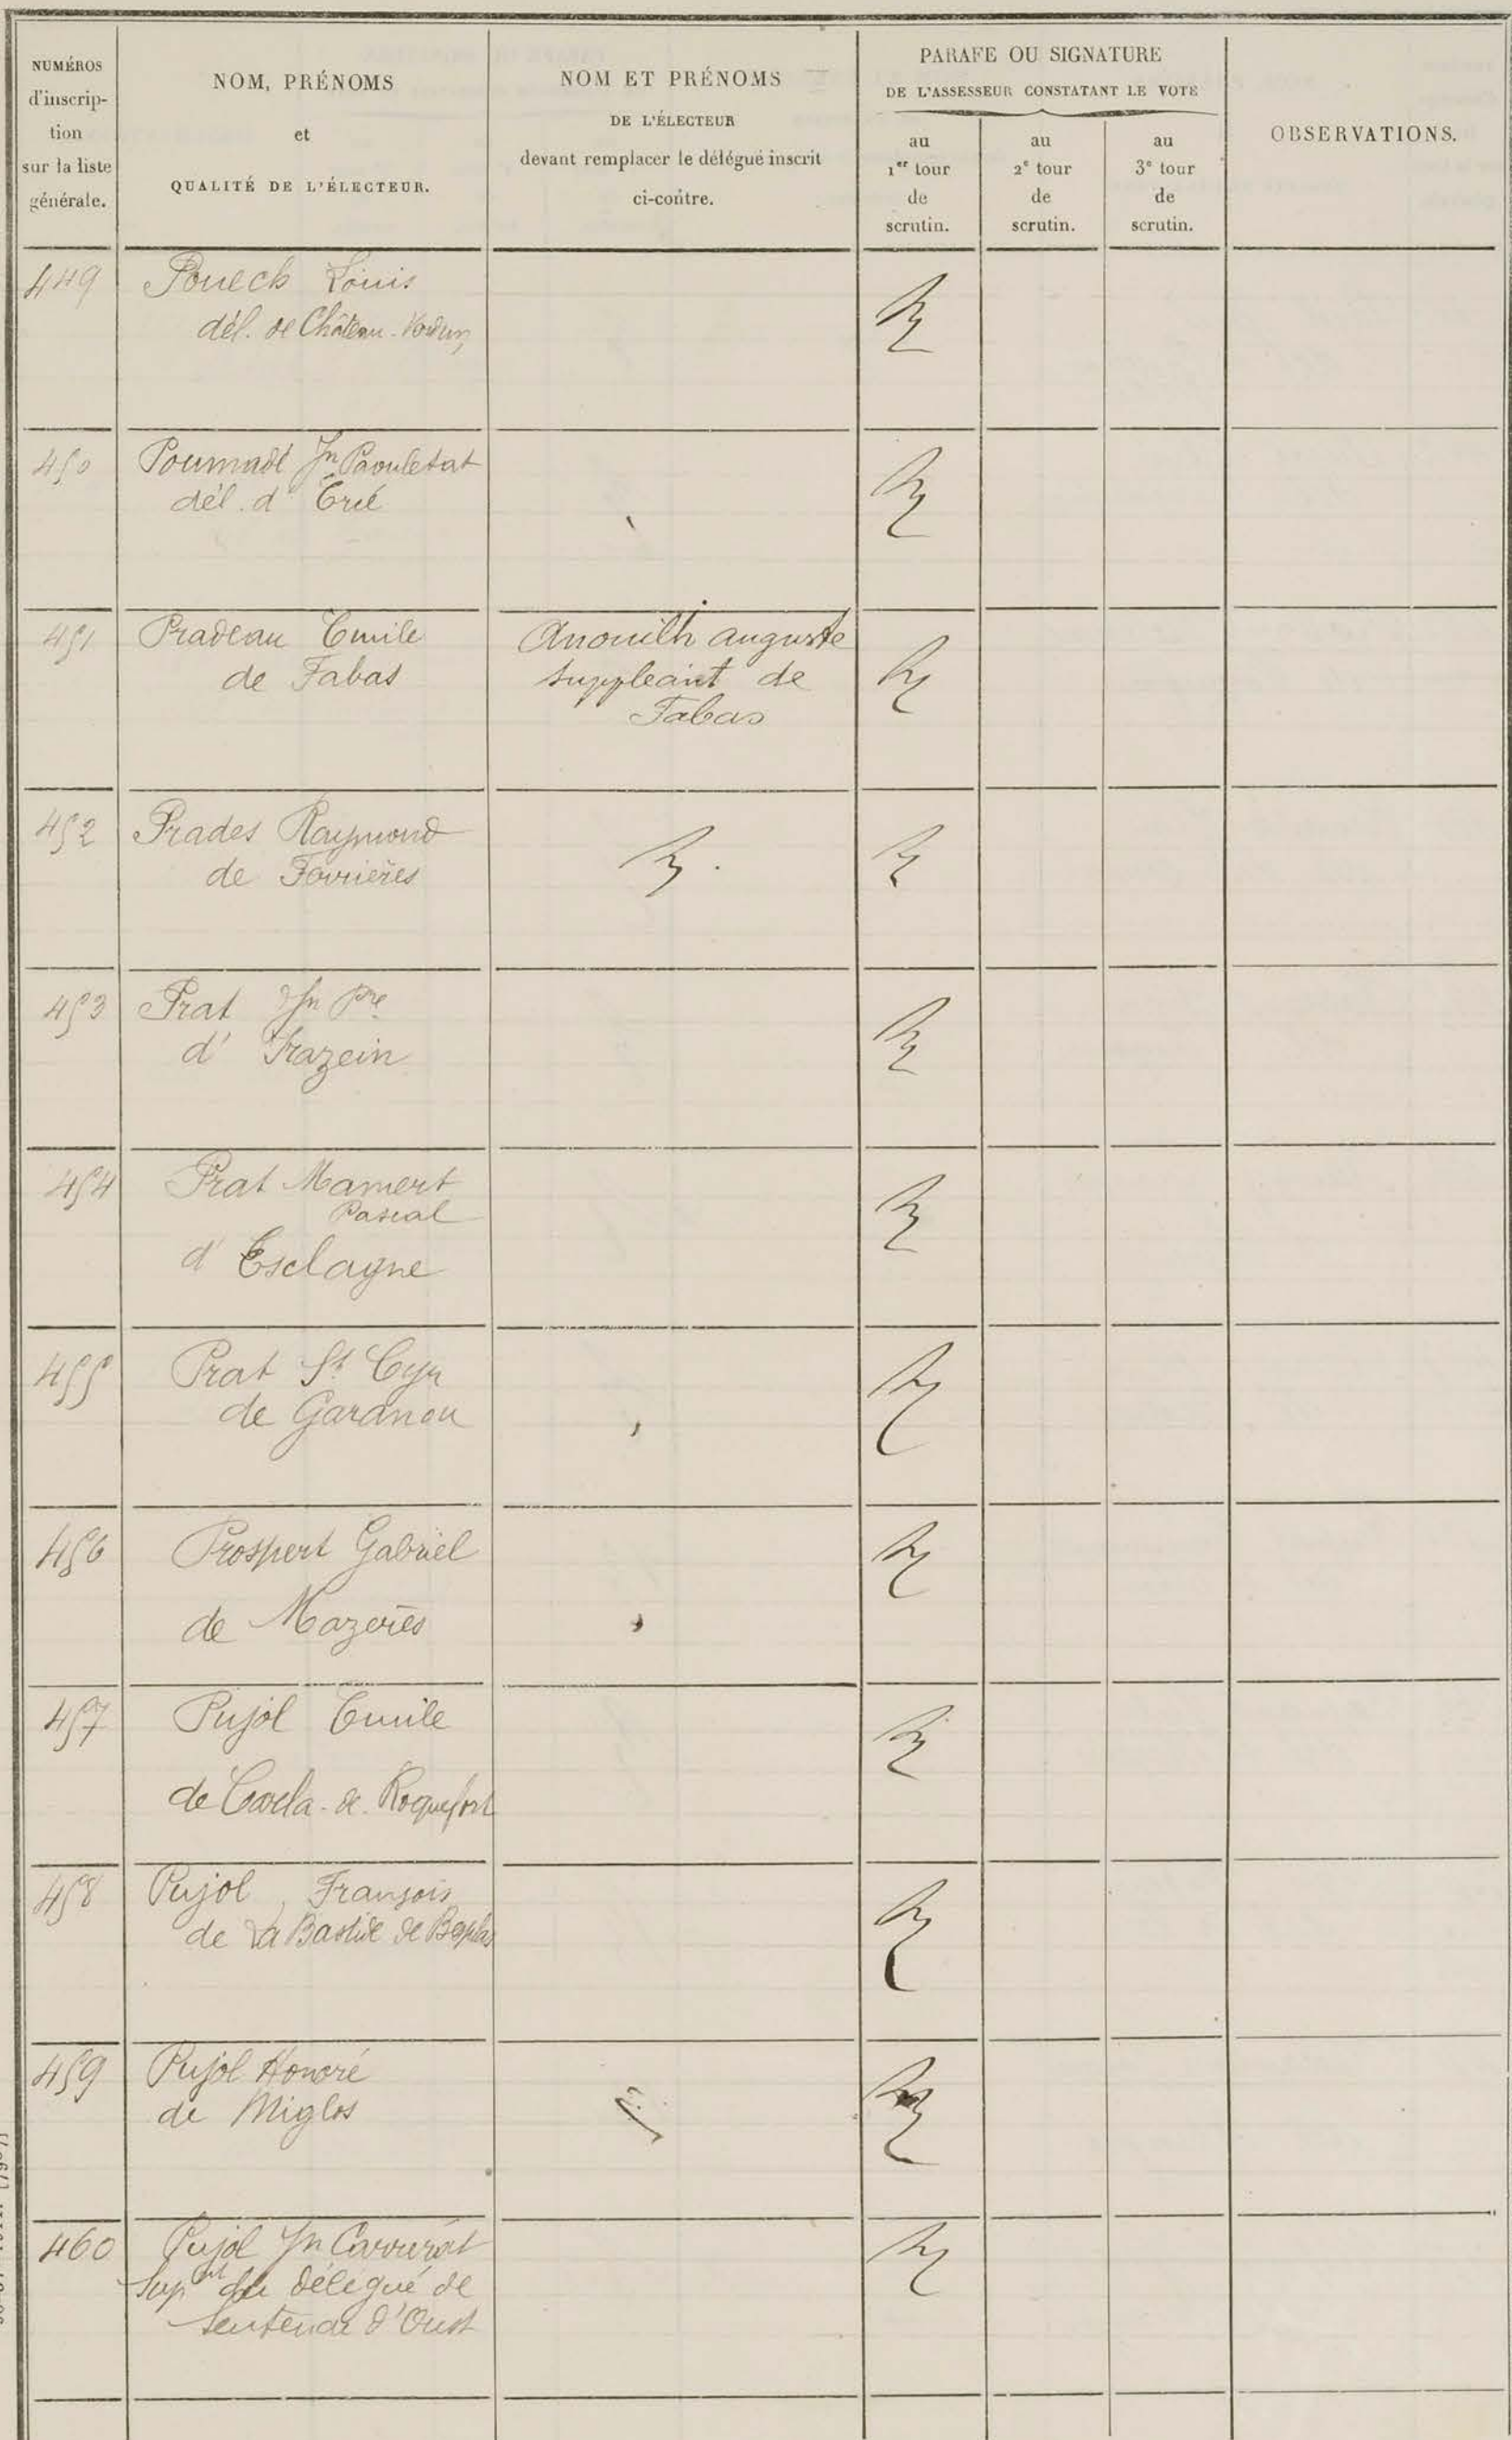 NUMÉROS
d'inscrip-
tion
sur la liste
générale.
NOM, PRÉNOMS
et
QUALITÉ DE L'ÉLECTEUR.
NOM ET PRÉNOMS
DE L'ÉLECTEUR
devant remplacer le délégué inscrit
ci-contre.
PARAFE OU SIGNATURE
DE L'ASSESSEUR CONSTATANT LE VOTE
au
1er tour
de
scrutin.
au
2e tour
de
scrutin.
au
3e tour
de
scrutin.
OBSERVATIONS.
449 Pouech Louis
dél. de Château-Verdun
450 Poumadé Jn Paouletat
dél. d' Ercé
451 Pradeau Emile
de Fabas
Anouilh auguste
suppleant de
Fabas
452 Prades Raymond
de
453 Prat Jn Pre
d' Irazein
454 Prat Mamert
Pascal
d' Esclagne
455 Prat St Cyr
de Garanou
456 Prospert Gabriel
de Mazères
457 Pujol Emile
de Carla-de-Roquefort
458 Pujol François
de La Bastide de Besplas
459 Pujol Honoré
de Miglos
460 Pujol Jn
Supnt du délégué de
Sentenac d'Oust